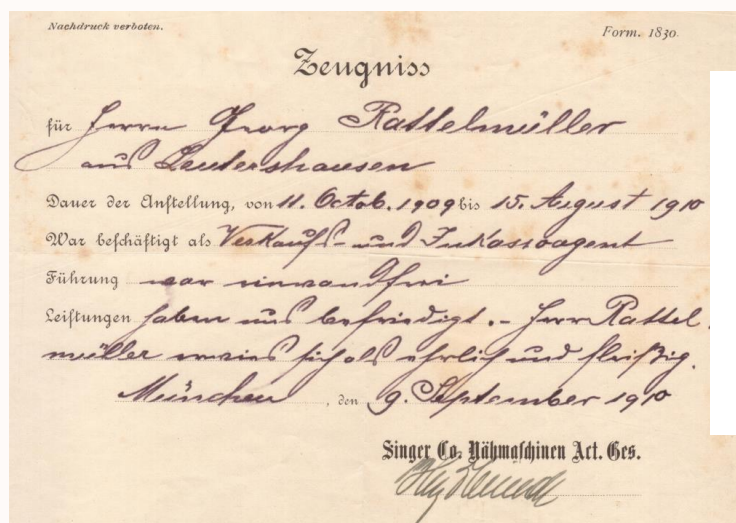 Nachdruck verboten.
Form. 1830.
Zeugniss
für Herrn Georg Rattelmüller
aus Leutershausen
Dauer der Anstellung, von 11. Octob. 1909 bis 15. August 1910
War beschäftigt als Verkaufs- und Inkassoagent
Führung war einwandfrei
Leistungen haben uns befriedigt. - Herr Rattel
müller erwies sich als ehrlich und fleißig.
München, den 9. September 1910
Singer Co. Nähmaschinen Act. Ges.